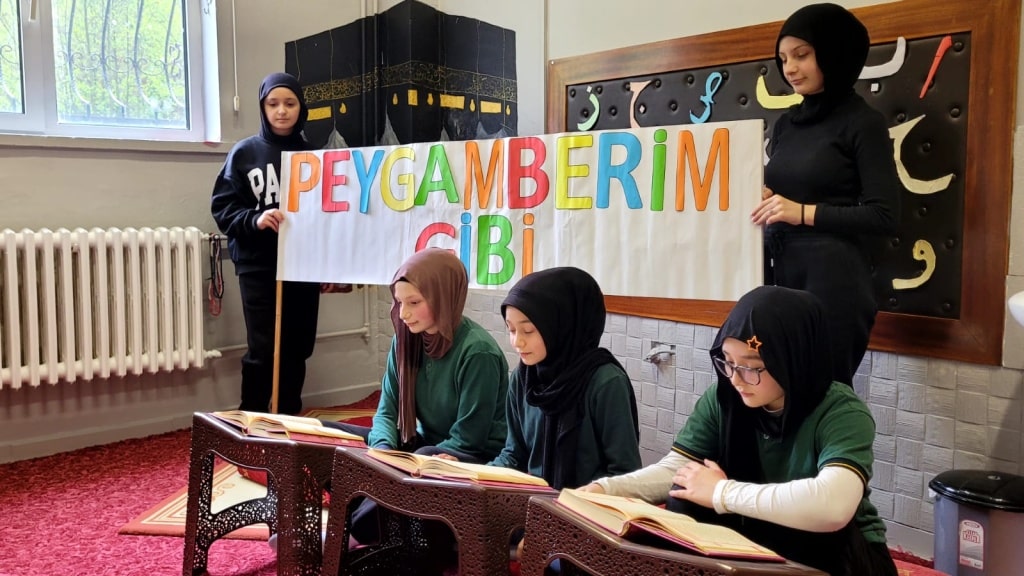 PEYGAMBERİM
GİBİ
PA